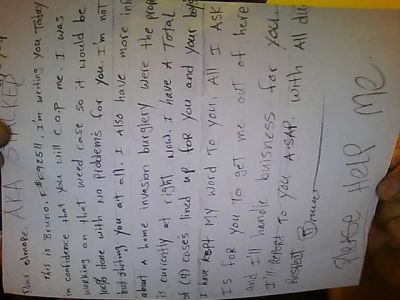 Dave elmore. AKA STALKER
This is Bruno. I'm writing you Today
in confidence that you will C.O.P me. I was
working on that weed case so it would be
done with NO problems for you. I'm not
but shitting you at all. I also have more info
about A home invasion burglery were the prope
is curicntly at right now. I have A Total
of (4) cases lined up for you and your boys
I have kept MY Word To you, All I Ask
Is for you To get me out of here
and I'll handle buisness for you.
I'll To you A-SAP. With All du
Respect,
Please Help Me.